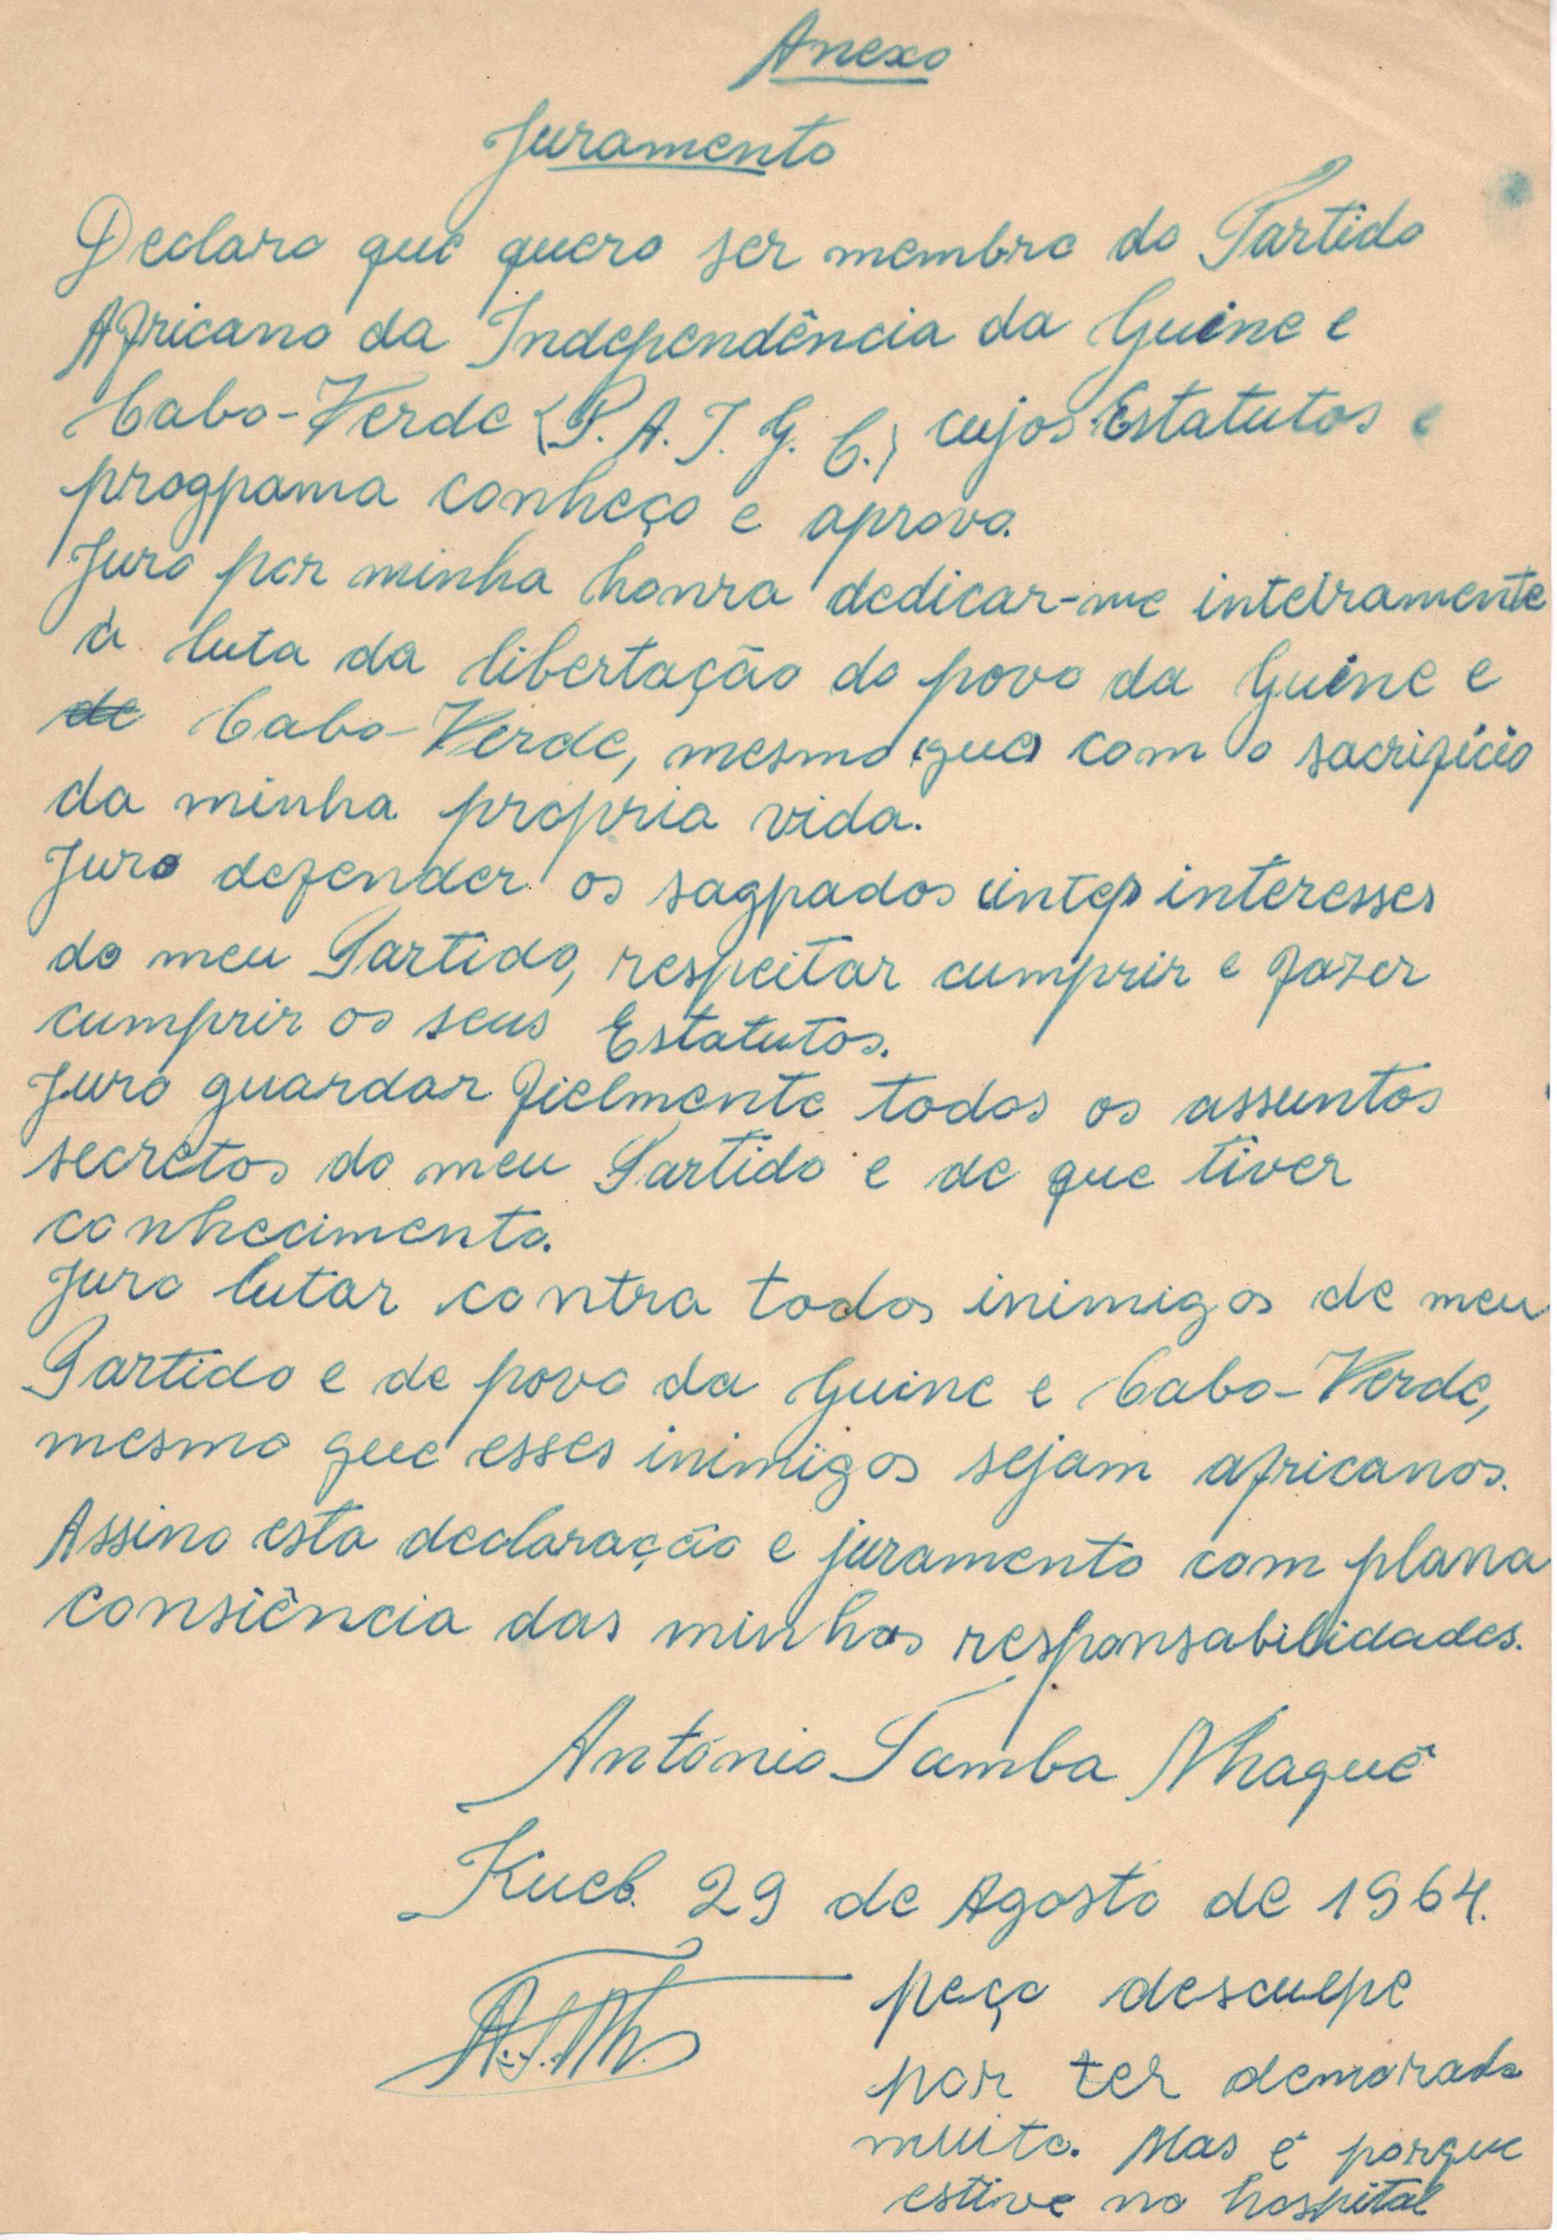 Anexo
Juramento
Declaro que quero ser membro do Partido
Africano da Independência da Guine e
Cabo-Verde (P. A. I. G. C.) cujos Estatutos e
progpama conheço e aprovo.
Juro por minha honra dedicar-me inteiramente
à luta da libertação do povo da Guine e
de Cabo-Verde, mesmo (que) com o sacrifício
da minha propria vida.
Juro defender os sagpados (intep) interesses
do meu Partido, respeitar cumprir e fazer
cumprir os seus Estatutos.
Juro guardar fielmente todos os assuntos
secretos do meu Partido e de que tiver
conhecimento.
Juro lutar contra todos inimigos de meu
Partido e de povo da Guine e Cabo-Verde,
mesmo que esses inimigos sejam africanos.
Assino esta declaração e juramento com plana
consiência das minhas responsabilidades.
António Tamba Nhaguê
Kueb. 29 de Agosto de 1964.
A.T.Nh.
peço desculpe
por ter demorado
muito. Mas é porque
estive no hospital